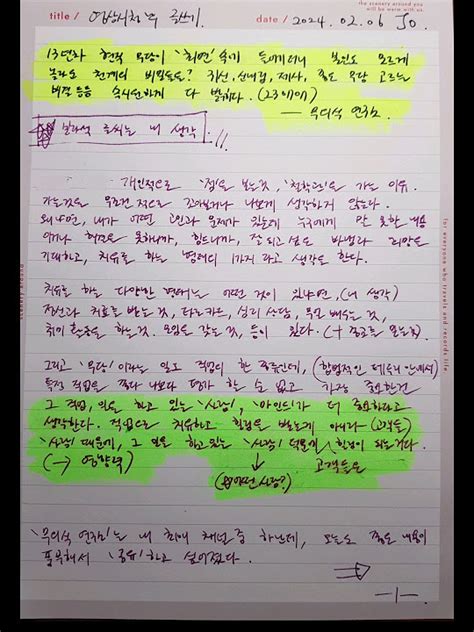 the scenery around you
will be warm with us.
title / 영상시청 후 글쓰기.
date / 2024. 02. 06 JO.
13년차 현직 무당이 '최면' 속에 들어가더니 본인도 모르게
놀라운 천계의 비밀들을? 귀신, 신내림, 제사, 좋은 무당 고르는
비결 등을 다 밝히다. (23에에)
— 무의식 연구소
보라색 글씨는 내 생각
개인적으로 '점'을 보는 것, '철학관'을 가는 이유.
가는것을 무조건 적으로 나쁘게 생각하지 않는다.
왜냐면, 내가 어떤 고민과 문제가 있는데 누구에게 말 못한 내용
이거나 해결을 못하니까, 힘드니까, 잘 되고 싶은 바램과 희망을
기대하고, 치유를 하는 형태의 1가지 라고 생각을 한다.
치유를 하는 다양한 형태는 어떤 것이 있냐면, (내 생각)
정신과 치료를 받는 것, 타로카드, 심리 상담, 무언 배우는 것,
취미 활동을 하는 것. 모임을 갖는 것, 등이 있다. (+ 종교를 믿는 것)
그리고 '무당' 이라는 일도 직업의 한 종류인데, (합법적인 테두리 안에서)
특정 직업은 좋다 나쁘다 평가 할 순 없고 가장 중요한건
그 직업, 일을 하고 있는 '사람', '마인드'가 더 중요하다고
생각한다. 직업으로 치유하고 힐링을 받는게 아니라 (고객들)
'사람' 때문에, 그 일을 하고 있는 '사람' 덕분에 힐링이 되는거다.
(→ 영향력)
(어떤 사람?)
고객들은
'무의식 연구소'는 내 최애 채널중 하나인데, 오늘도 좋은 내용이
풍부해서 '공유'하고 싶어졌다.
—1—
for everyone who travels and records life